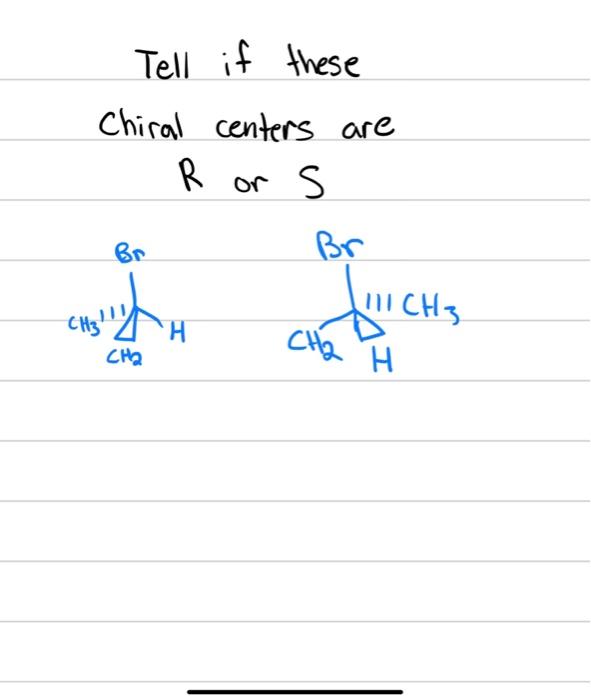 Tell if these
Chiral centers are
R or S
Br Br
CH3 H CH2 CH3
CH2 H